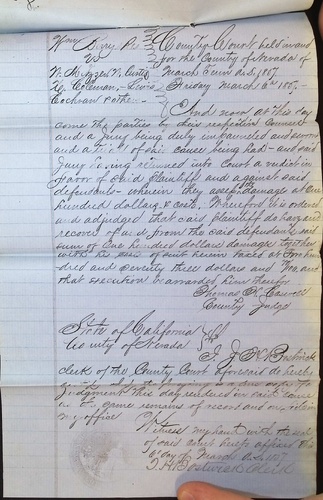 Wm
County Court held in and
vs
for the County of Nevada of
March Term A.D. 1867
H. Coleman, Lewis
Friday March
Cochran
And now at this day
come the parties by their respective counsel
and a Jury being duly empanneled and sworn
and a Trial of this cause being had and said
Jury having returned into Court a verdict in
favor of said Plaintiff and against said
defendants wherein they assess damages at One
hundred dollars & costs. Wherefore it is ordered
and adjudged that said plaintiff do have and
recover of and from the said defendants said
sum of One hundred dollars damages together
with his costs of suit herein taxed at
dred and Seventy three dollars and and
that execution be awarded him therefor
Thomas
County Judge
State of California } ss
County of Nevada
I J H Bostwick
clerk of the County Court aforesaid do hereby
foregoing is a true copy of
Judgment this day rendered in said cause
as the same remains of record and on file in
my office
Witness my hand with the seal
of said Court hereto affixed this
day of March A.D. 1867
J.H. Bostwick Clerk